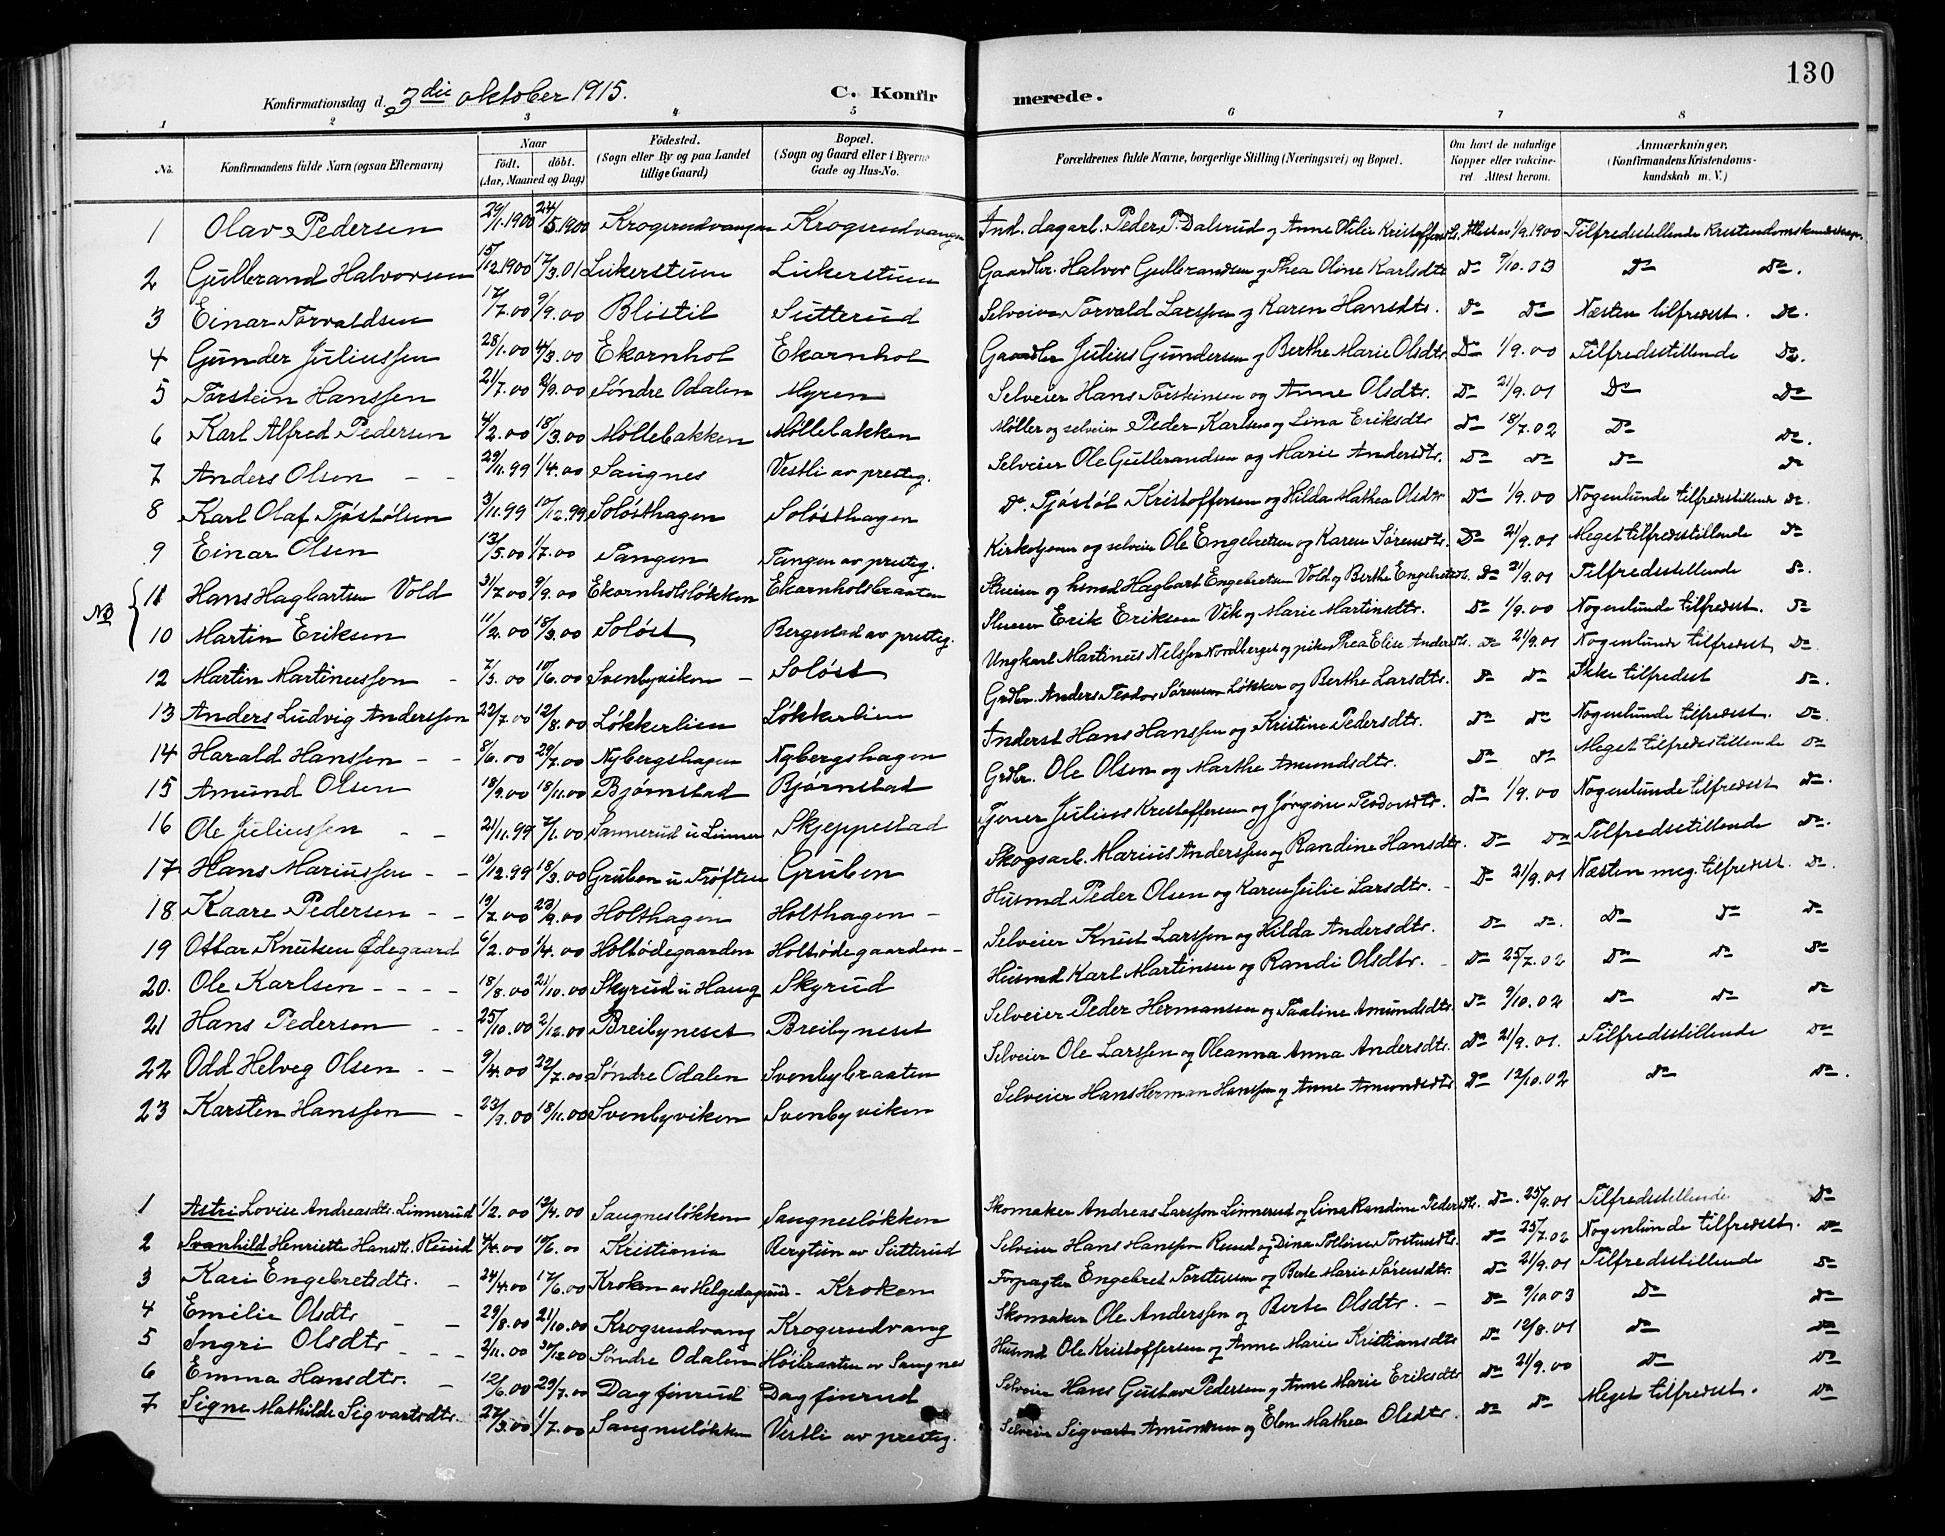 130
Konfirmationsdag d. 3die oktober 1915.
C. Konfirmerede.
1 2 3 4 5 6 7 8
No. Konfirmandens fulde Navn (ogsaa Efternavn) Naar födt. döbt. (Aar, Maaned og Dag) Födested. (Sogn eller By og paa Landet tillige Gaard) Bopæl. (Sogn og Gaard eller i Byerne Gade og Hus-No. Forældrenes fulde Navne, borgerlige Stilling (Næringsvei) og Bopæl. Om havt de naturlige Kopper eller vakcineret Attest herom. Anmærkninger, (Konfirmandens Kristendomskundskab m. V.)
1 Olav Pedersen 29/1.1900 24/5.1900 Krogsrudvangen Krogsrudvangen Ind. dagarb. Peder P. Dalsrud og Anne Otilie Kristoffersdtr. Attest av 1/9.1900 Tilfredsstillende Kristendomskundskap.
2 Gulbrand Halvorsen 15/12.1900 17/3.01 Likerstuen Likerstuen Gaardbr. Halvor Gulbrandsen og Thea Oline Karlsdtr do 9/10.03 do do.
3 Einar Torvaldsen 17/7.00 9/9.00 Blistil Sutterud Selveier Torvald Larssen og Karen Hansdtr. do do Næsten tilfredsst. do.
4 Gunder Juliussen 28/1.00 4/3.00 Ekornhol Ekornhol Gaardbr Julius Gundersen og Berthe Marie Olsdtr. do 1/9.00 Tilfredsstillende do.
5 Torstein Hanssen 21/7.00 2/9.00 Søndre Odalen Myren Selveier Hans Torsteinsen og Anne Olsdtr. do 21/9.01 do do
6 Karl Alfred Pedersen 4/2.00 18/3.00 Møllebakken Møllebakken Møller og selveier Peder Karlsen og Lina Eriksdtr do 18/7.02 do do.
7 Anders Olsen 29/11.99 1/4.00 Saugnes Vestli av presteg. Selveier Ole Gulbrandsen og Marie Andersdtr. do do do do
8 Karl Olaf Tjøstølsen 3/11.99 10/12.99 Soløsthagen Soløsthagen do. Tjøstøl Kristoffersen og Hilda Mathea Olsdtr do 1/9.00 Nogenlunde tilfredsstillende do.
9 Einar Olsen 13/5.00 1/7.00 Tangen Tangen av presteg. Kirketjener og selveier Ole Engebretsen og Karen Sørensdtr. do 21/9.01 Meget tilfredsstillende do
NB
11 Hans Hagbartsen Vold 31/7.00 9/9.00 Ekornholsløkken Ekornholsbraaten Skreiner og husmd Hagbart Engebretsen Vold og Berthe Engebretsdtr. do 21/9.01 Tilfredsstillende do.
10 Martin Eriksen 11/2.00 18/3.00 Soløst Bergestad av presteg. Erik Eriksen Vik og Marie Martinsdtr. do 1/9.00 Nogenlunde tilfredsst. do
12 Martin Martinussen 7/3.00 10/6.00 Svenbyviken Soløst Ungkarl Martinus Nelssen Nordberget og pike Thea Elise Andersdtr. do 21/9.01 Nogenlunde tilfredsst do
13 Anders Ludvig Anderssen 22/7.00 12/8.00 Løkkerlien Løkkerlien Grdbr. Anders Teodor Sørensen Løkker og Berthe Larsdtr. do do Ikke tilfredsst do.
14 Harald Hanssen 8/6.00 29/7.00 Nybergshagen Nybergshagen Inderst Hans Hanssen og Kristine Pedersdtr. do do Nogenlunde tilfredsst. do.
15 Amund Olsen 18/9.00 18/11.00 Bjørnstad Bjørnstad Grdbr. Ole Olsen og Marthe Amundsdtr. do do Meget tilfredsstillende do
16 Ole Juliussen 21/11.99 7/1.00 Sannerud u Linner Skjeppestad Tjener Julius Kristoffersen og Jørgine Teodorsdtr. do 1/9.00 Nogenlunde tilfredsst do.
17 Hans Mariussen 19/12.99 18/3.00 Gruben u Trøften Gruben Skogsarb. Marius Anderssen og Randine Hansdtr. do do Tilfredsstillende do.
18 Kaare Pedersen 19/7.00 23/9.00 Holthagen Holthagen Husmd Peder Olsen og Karen Julie Larsdtr. do 21/9.01 Næsten meg. tilfredsst. do
19 Ottar Knutsen Ødegaard 6/2.00 1/4.00 Holtødegaarden Holtødegaarden Selveier Knut Larssen og Hilda Andersdtr. do do. do do do
20. Ole Karlsen 18/8.00 21/10.00 Skyrud u Haug Skyrud Husmd Karl Martinsen og Randi Olsdtr. do 25/7.02 do do do
21 Hans Pedersen 25/10.00 2/12.00 Breibyneset Breibyneset Selveier Peder Hermansen og Pauline Amundsdtr. do 9/10.02 do do do
22 Odd Helveg Olsen 9/4.00 22/7.00 Søndre Odalen Svenbybraaten Selveier Ole Larssen og Oleanna Anna Andersdtr. do 21/9.01. Tilfredsstillende do
23 Karsten Hanssen 23/9.00 18/11.00 Svenbyviken Svenbyviken Selveier Hans Herman Hanssen og Anne Amundsdtr do 12/10.02 do do.
1 Astri Lovise Andreasdtr. Linnerud 1/2.00 12/4.00 Saugnesløkken Saugnesløkken Skomaker Andreas Larssen Linnerud og Lina Randine Pedersdtr. do. 25/9.01 Tilfredsstillende do
2 Svanhild Henriette Hansdtr. Ruud 4/4.00 10/6.00 Kristiania Bergtun av Sutterud Selveier Hans Hanssen Ruud og Dina Torstensdtr. do 25/7.02 Nogenlunde tilfredsst. do
3 Kari Engebretsdtr. 24/4.00 17/6.00 Kroken av Helgedagsrud Kroken Forpagter Engebret Torstensen og Berte Marie Sørensdtr. do 21/9.01 Tilfredsstillende do
4 Emilie Olsdtr 29/8.00 21/10.00 Krogsrudvang Krogsrudvang Skomaker Ole Anderssen og Berte Olsdtr. do 9/10.03 do do
5 Ingri Olsdtr 2/11.00 30/12.00 Søndre Odalen Høibraaten av Saugnes Husmd Ole Kristoffersen og Anne Marie Kristiansdtr do 12/8.01 do do
6 Emma Hansdtr. 12/6.00 29/7.00 Dagfinrud Dagfinrud Selveier Hans Gustav Pedersen og Anne Marie Eriksdtr do 21/9.00 do do
7 Signe Mathilde Sigvartsdtr. 27/3.00 1/7.00 Saugnesløkken Vestli av presteg. Selveier Sigvart Amundsen og Elen Mathea Olsdtr. do do Meget tilfredsst. do